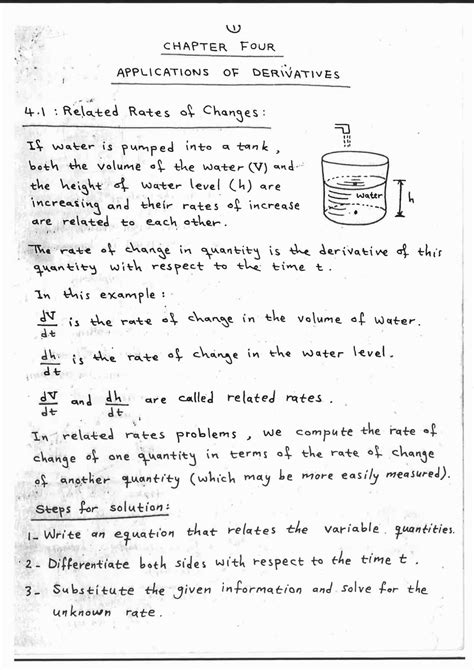 1
CHAPTER FOUR
APPLICATIONS OF DERIVATIVES
4.1 : Related Rates of Changes :
If water is pumped into a tank,
both the volume of the water (V) and
the height of water level (h) are
increasing and their rates of increase
are related to each other.
water
h
The rate of change in quantity is the derivative of this
quantity with respect to the time t.
In this example :
dV/dt is the rate of change in the volume of water.
dh/dt is the rate of change in the water level.
dV/dt and dh/dt are called related rates.
In related rates problems, we compute the rate of
change of one quantity in terms of the rate of change
of another quantity (which may be more easily measured).
Steps for solution:
1- Write an equation that relates the variable quantities.
2- Differentiate both sides with respect to the time t.
3- Substitute the given information and solve for the
unknown rate.